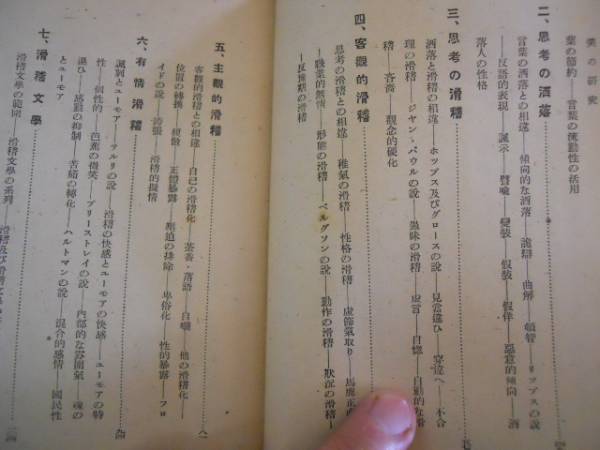 葉の節約——言葉の流動性の活用
二、思考の洒落
言葉の洒落との相違——傾向的な洒落——詭辯——曲解——頓智——リップスの説
——反語的表現——諷示——聲喩——變裝——假裝——假佯——惡意的傾向——酒
落人の性格
三、思考の滑稽
洒落と滑稽の相違——ホッブス及びグロースの説——見當違ひ——穿違へ——不合
理の滑稽——ジャン・パウルの説——愚昧の滑稽——虚言——自惚——自動的な滑
稽——吝嗇——觀念的硬化
四、客觀的滑稽
思考の滑稽との相違——稚氣の滑稽——性格の滑稽——虚飾氣取り——馬鹿正直
——職業的無情——形態の滑稽——ベルグソンの説——動作の滑稽——狀況の滑稽
——反豫期の滑稽
五、主觀的滑稽
客觀的滑稽との相違——自己の滑稽化——茶番・落語——自嘲——他の滑稽化——
位置の轉換——模倣——正體暴露——壓迫の排除——卑俗化——性的暴露——フロ
イドの説——誇張——滑稽的擬情
六、有情滑稽
諷刺とユーモア——サルリの説——滑稽の快感とユーモアの快感——ユーモアの特
性——個性的——芭蕉の微笑——プリーストレイの説——内部的な雰圍氣——魂の
——感動の抑制——苦痛の轉化——ハルトマンの説——混合的感情——國民性
とユーモア
七、滑稽文學
滑稽文學の範圍——滑稽文學の系列